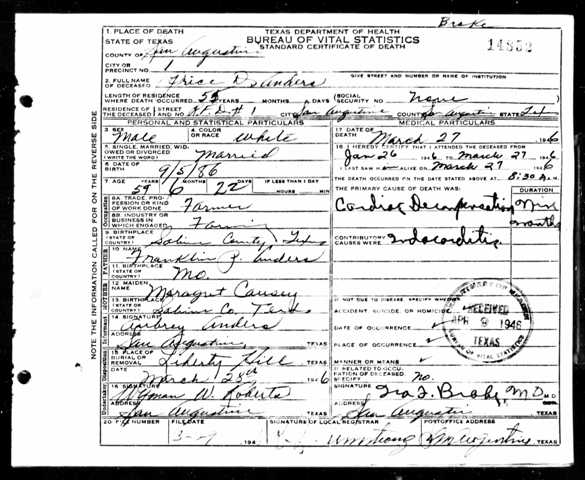 Brake
1. PLACE OF DEATH
STATE OF TEXAS
TEXAS DEPARTMENT OF HEALTH
BUREAU OF VITAL STATISTICS
STANDARD CERTIFICATE OF DEATH
COUNTY OF San Augustine
CITY OR
PRECINCT NO. 1
GIVE STREET AND NUMBER OR NAME OF INSTITUTION
2. FULL NAME
OF DECEASED Trice D. Anders
LENGTH OF RESIDENCE
WHERE DEATH OCCURRED 59 YEARS MONTHS DAYS
SOCIAL
SECURITY NO. None
RESIDENCE OF
THE DECEASED STREET
AND NO. Rt # 1 CITY San Augustine COUNTY San Augustine STATE Tex
PERSONAL AND STATISTICAL PARTICULARS
MEDICAL PARTICULARS
3. SEX Male
4. COLOR
OR RACE White
17. DATE OF
DEATH March 27 1946
5. SINGLE, MARRIED, WIDOWED
OR DIVORCED
(WRITE THE WORD) Married
18. I HEREBY CERTIFY THAT I ATTENDED THE DECEASED FROM
Jan 26 1946 TO March 27 1946
6. DATE OF
BIRTH 9/5/86
I LAST SAW ALIVE ON March 27 1946
THE DEATH OCCURRED ON THE DATE STATED ABOVE AT 8:30 A.M.
7. AGE YEARS 59 MONTHS 6 DAYS 22 IF LESS THAN 1 DAY HOURS MIN
THE PRIMARY CAUSE OF DEATH WAS: DURATION
8A. TRADE, PROFESSION
OR KIND
OF WORK DONE Farmer
Cardiac Decompensation Nine
months
8B. INDUSTRY OR
BUSINESS IN
WHICH ENGAGED Farming
9. BIRTHPLACE
(STATE OR
COUNTRY) Sabine County, Texas
CONTRIBUTORY
CAUSES WERE Endocarditis
10. NAME Franklin P. Anders
11. BIRTHPLACE
(STATE OR
COUNTRY) Mo.
12. MAIDEN
NAME Maragret Causey
13. BIRTHPLACE
(STATE OR
COUNTRY) Sabine Co. Texas
IF NOT DUE TO DISEASE, SPECIFY WHETHER
ACCIDENT, SUICIDE, OR HOMICIDE
14. SIGNATURE
Aubrey Anders
DATE OF OCCURRENCE
ADDRESS
San Augustine TEXAS
PLACE OF OCCURRENCE
RECEIVED
APR 9 1946
TEXAS
BUREAU OF VITAL STATISTICS
15. PLACE OF
BURIAL OR
REMOVAL Liberty Hill TEXAS
MANNER OR MEANS
DATE
March 28th 1946
IF RELATED TO OCCUPATION
OF DECEASED
SPECIFY no.
16. SIGNATURE
Wyman W. Roberts
SIGNATURE M.D.
ADDRESS
San Augustine TEXAS
ADDRESS
San Augustine TEXAS
20. FILE
NUMBER FILE DATE 194
SIGNATURE OF LOCAL REGISTRAR
POSTOFFICE ADDRESS
San Augustine, TEXAS
NOTE THE INFORMATION CALLED FOR ON THE REVERSE SIDE
Occupation
FATHER
MOTHER
Informant
Disposition
Undertaker